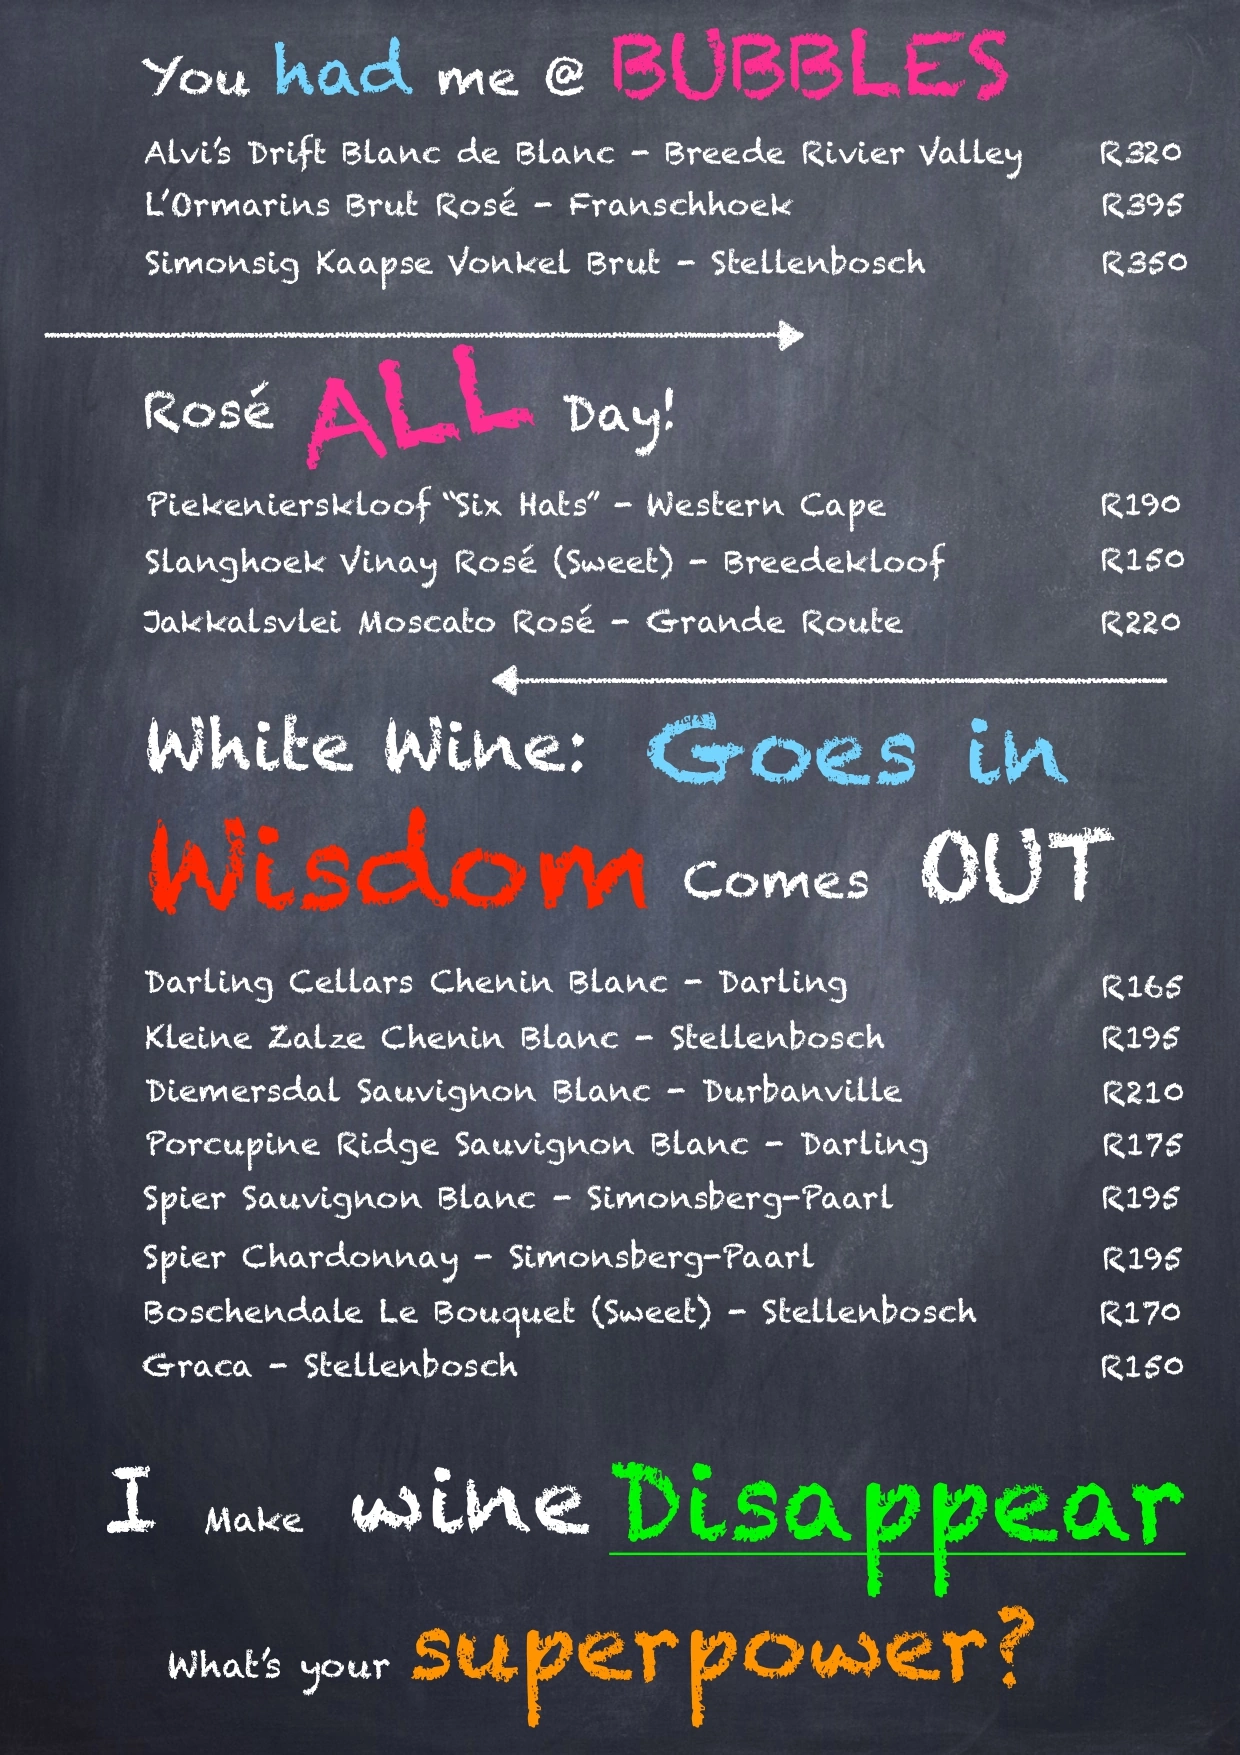 You had me @ BUBBLES
Alvi's Drift Blanc de Blanc - Breede Rivier Valley R320
L'Ormarins Brut Rosé - Franschhoek R395
Simonsig Kaapse Vonkel Brut - Stellenbosch R350
Rosé ALL Day!
Piekenierskloof “Six Hats” - Western Cape R190
Slanghoek Vinay Rosé (Sweet) - Breedekloof R150
Jakkalsvlei Moscato Rosé - Grande Route R220
White Wine: Goes in
Wisdom Comes OUT
Darling Cellars Chenin Blanc - Darling R165
Kleine Zalze Chenin Blanc - Stellenbosch R195
Diemersdal Sauvignon Blanc - Durbanville R210
Porcupine Ridge Sauvignon Blanc - Darling R175
Spier Sauvignon Blanc - Simonsberg-Paarl R195
Spier Chardonnay - Simonsberg-Paarl R195
Boschendale Le Bouquet (Sweet) - Stellenbosch R170
Graca - Stellenbosch R150
I Make wine Disappear
What's your superpower?